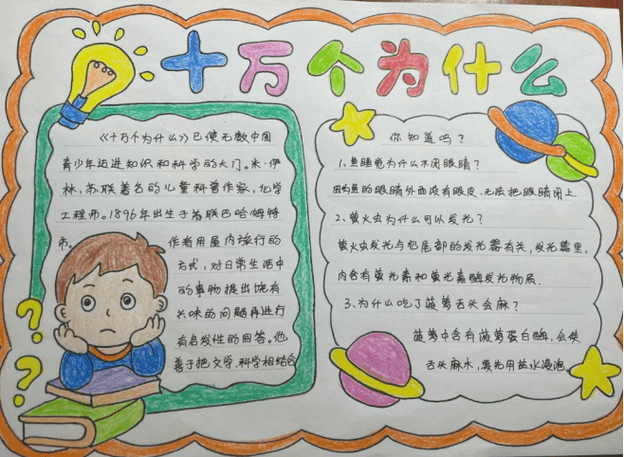 十万个为什么
《十万个为什么》已使无数中国
青少年迈进知识和科学的大门。米·伊
林,苏联著名的儿童科普作家,化学
工程师。1896年出生于苏联巴哈姆特
市。
作者用屋内旅行的
方式,对日常生活中
的事物提出饶有
兴味的问题再进行
有启发性的回答。他
善于把文学、科学相结合
你知道吗?
1、鱼睡觉为什么不闭眼睛?
因为鱼的眼睛外面没有眼皮、无法把眼睛闭上.
2、萤火虫为什么可以发光?
萤火虫发光与它尾部的发光器有关,发光器里,
内含有萤光素和萤光素酶发光物质.
3、为什么吃了菠萝舌头会麻?
菠萝中含有菠萝蛋白酶,会使
舌头麻木,要先用盐水浸泡。
?
?
?